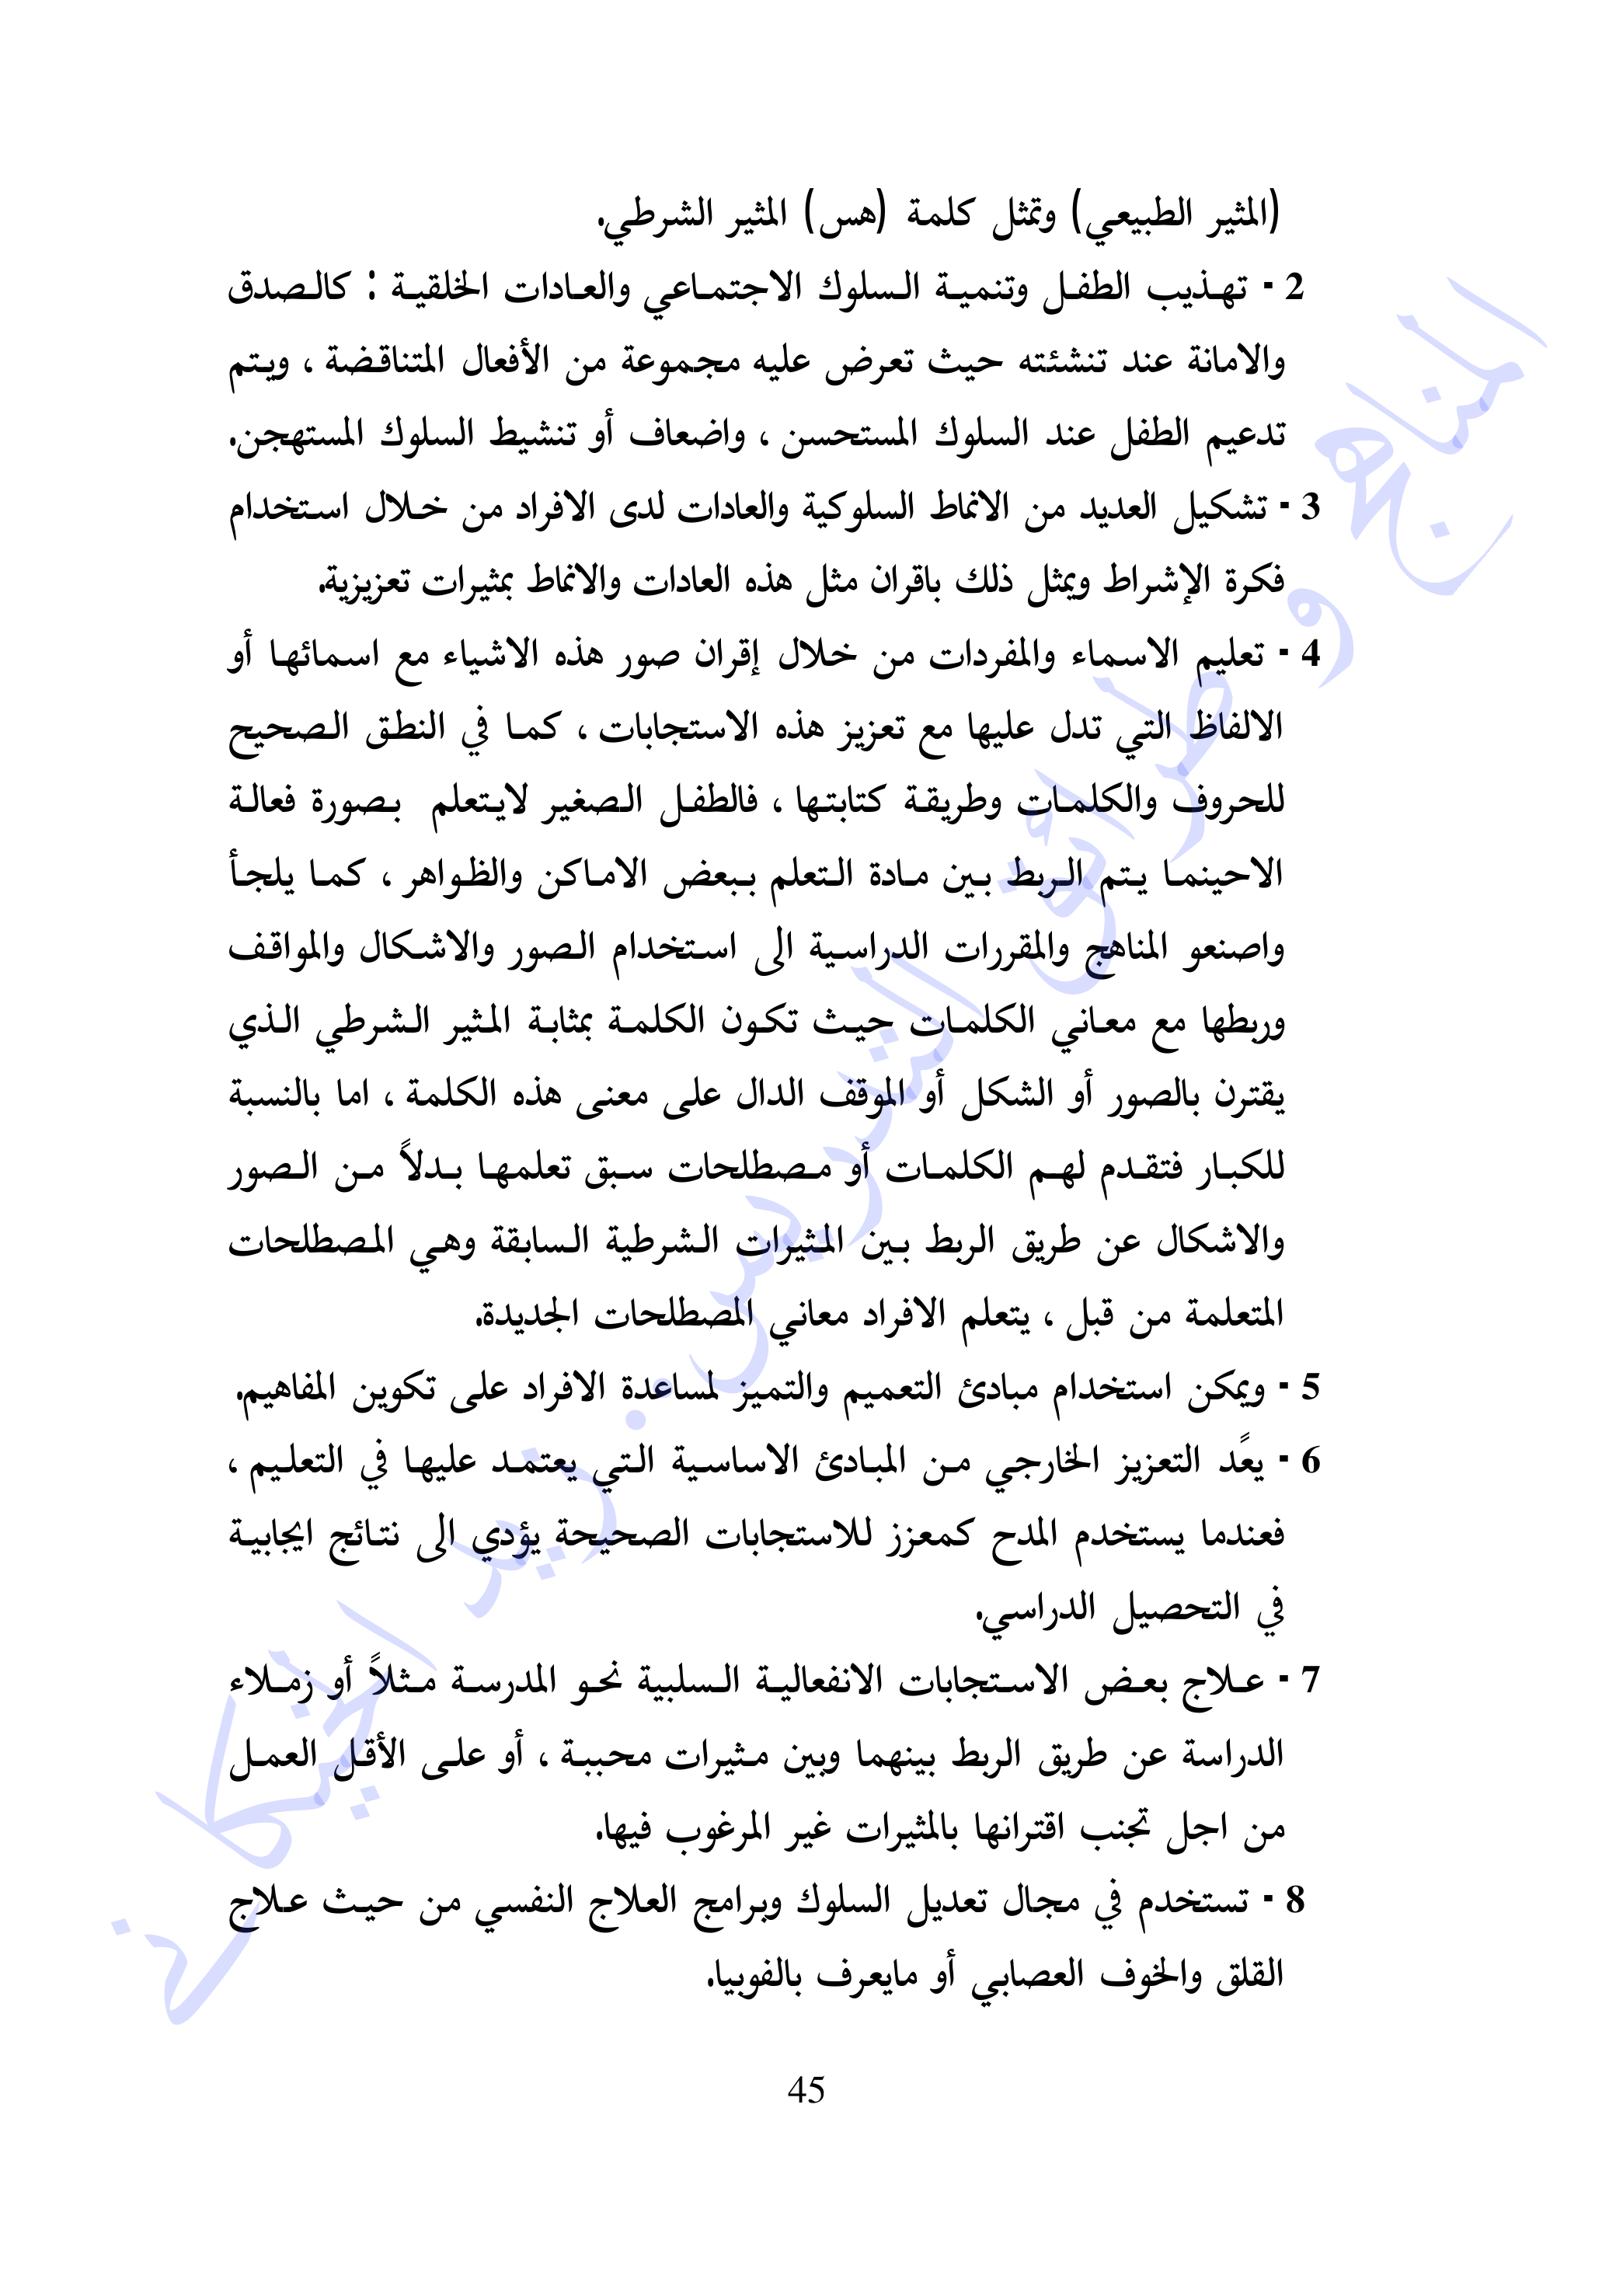 (المثير الطبيعي) وتمثل كلمة (هس) المثير الشرطي.
2 - تهذيب الطفل وتنمية السلوك الاجتماعي والعادات الخلقية : كالصدق
والامانة عند تنشئته حيث تعرض عليه مجموعة من الأفعال المتناقضة ، ويتم
تدعيم الطفل عند السلوك المستحسن ، واضعاف أو تنشيط السلوك المستهجن.
3 - تشكيل العديد من الانماط السلوكية والعادات لدى الافراد من خلال استخدام
فكرة الإشراط ويمثل ذلك باقران مثل هذه العادات والانماط بمثيرات تعزيزية.
4 - تعليم الاسماء والمفردات من خلال إقران صور هذه الاشياء مع اسمائها أو
الالفاظ التي تدل عليها مع تعزيز هذه الاستجابات ، كما في النطق الصحيح
للحروف والكلمات وطريقة كتابتها ، فالطفل الصغير لايتعلم بصورة فعالة
الاحينما يتم الربط بين مادة التعلم ببعض الاماكن والظواهر ، كما يلجأ
واصنعو المناهج والمقررات الدراسية الى استخدام الصور والاشكال والمواقف
وربطها مع معاني الكلمات حيث تكون الكلمة بمثابة المثير الشرطي الذي
يقترن بالصور أو الشكل أو الموقف الدال على معنى هذه الكلمة ، اما بالنسبة
للكبار فتقدم لهم الكلمات أو مصطلحات سبق تعلمها بدلاً من الصور
والاشكال عن طريق الربط بين المثيرات الشرطية السابقة وهي المصطلحات
المتعلمة من قبل ، يتعلم الافراد معاني المصطلحات الجديدة.
5 - ويمكن استخدام مبادئ التعميم والتميز لمساعدة الافراد على تكوين المفاهيم.
6 - يعًد التعزيز الخارجي من المبادئ الاساسية التي يعتمد عليها في التعليم ،
فعندما يستخدم المدح كمعزز للاستجابات الصحيحة يؤدي الى نتائج ايجابية
في التحصيل الدراسي.
7 - علاج بعض الاستجابات الانفعالية السلبية نحو المدرسة مثلاً أو زملاء
الدراسة عن طريق الربط بينهما وبين مثيرات محببة ، أو على الأقل العمل
من اجل تجنب اقترانها بالمثيرات غير المرغوب فيها.
8 - تستخدم في مجال تعديل السلوك وبرامج العلاج النفسي من حيث علاج
القلق والخوف العصابي أو مايعرف بالفوبيا.
45